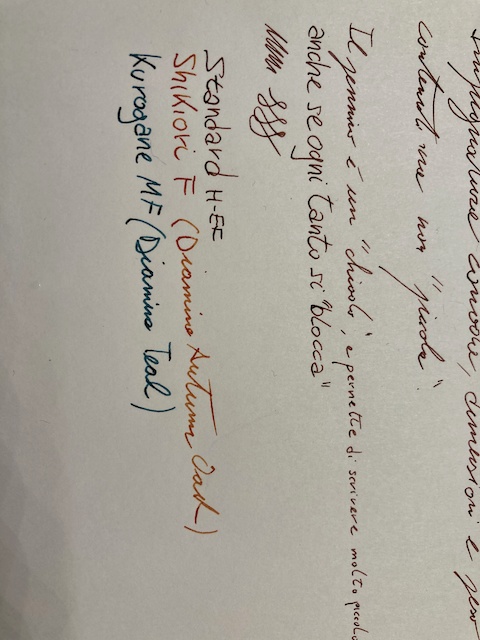 Impugnatura comoda, dimensioni e peso
contenuti ma non "piccola".
Il pennino è un "chiodo", e permette di scrivere molto piccolo
anche se ogni tanto si "blocca"
Standard H-EF
Shikiori F (Diamine Autumn Oak)
Kurogane MF (Diamine Teal)